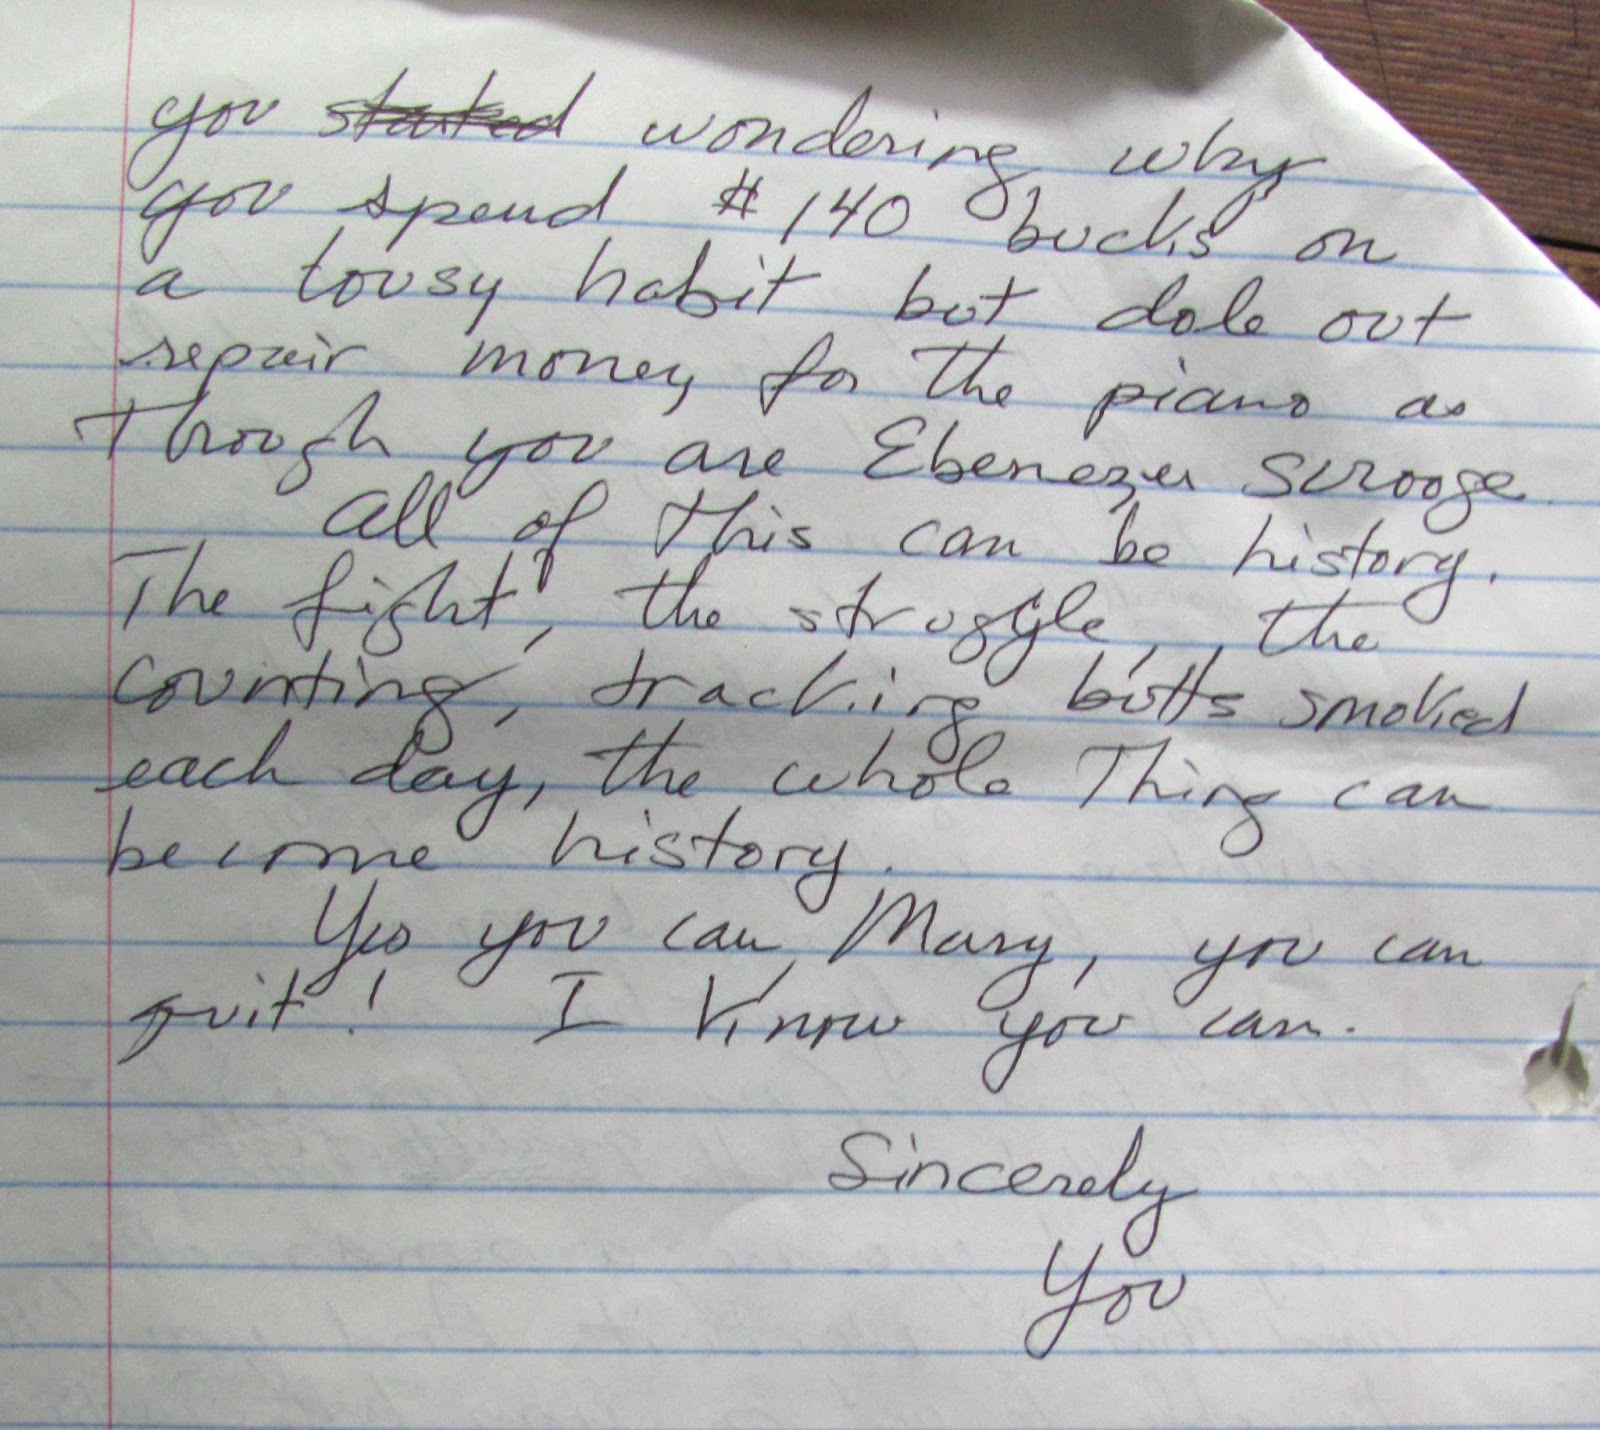 you started wondering why
you spend $140 bucks on
a lousy habit but dole out
repair money for the piano as
though you are Ebenezer Scrooge.
All of this can be history.
The fight, the struggle, the
counting, tracking butts smoked
each day, the whole thing can
become history.
Yes you can Mary, you can
quit! I know you can.
Sincerely
You